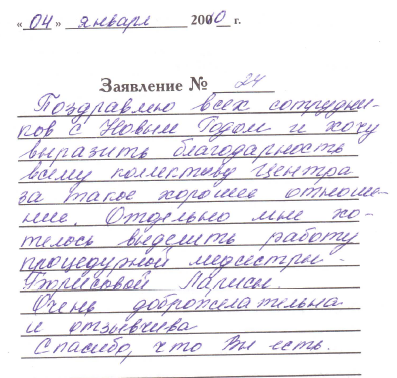 «04» января 2010 г.
Заявление № 24
Поздравляю всех сотрудни-
ков с Новым Годом и хочу
выразить благодарность
всему коллективу Центра
за такое хорошее отноше-
ние. Отдельно мне хо-
телось выделить работу
процедурной медсестры -
Ларисы.
Очень доброжелательна
и отзывчива
Спасибо, что Вы есть.